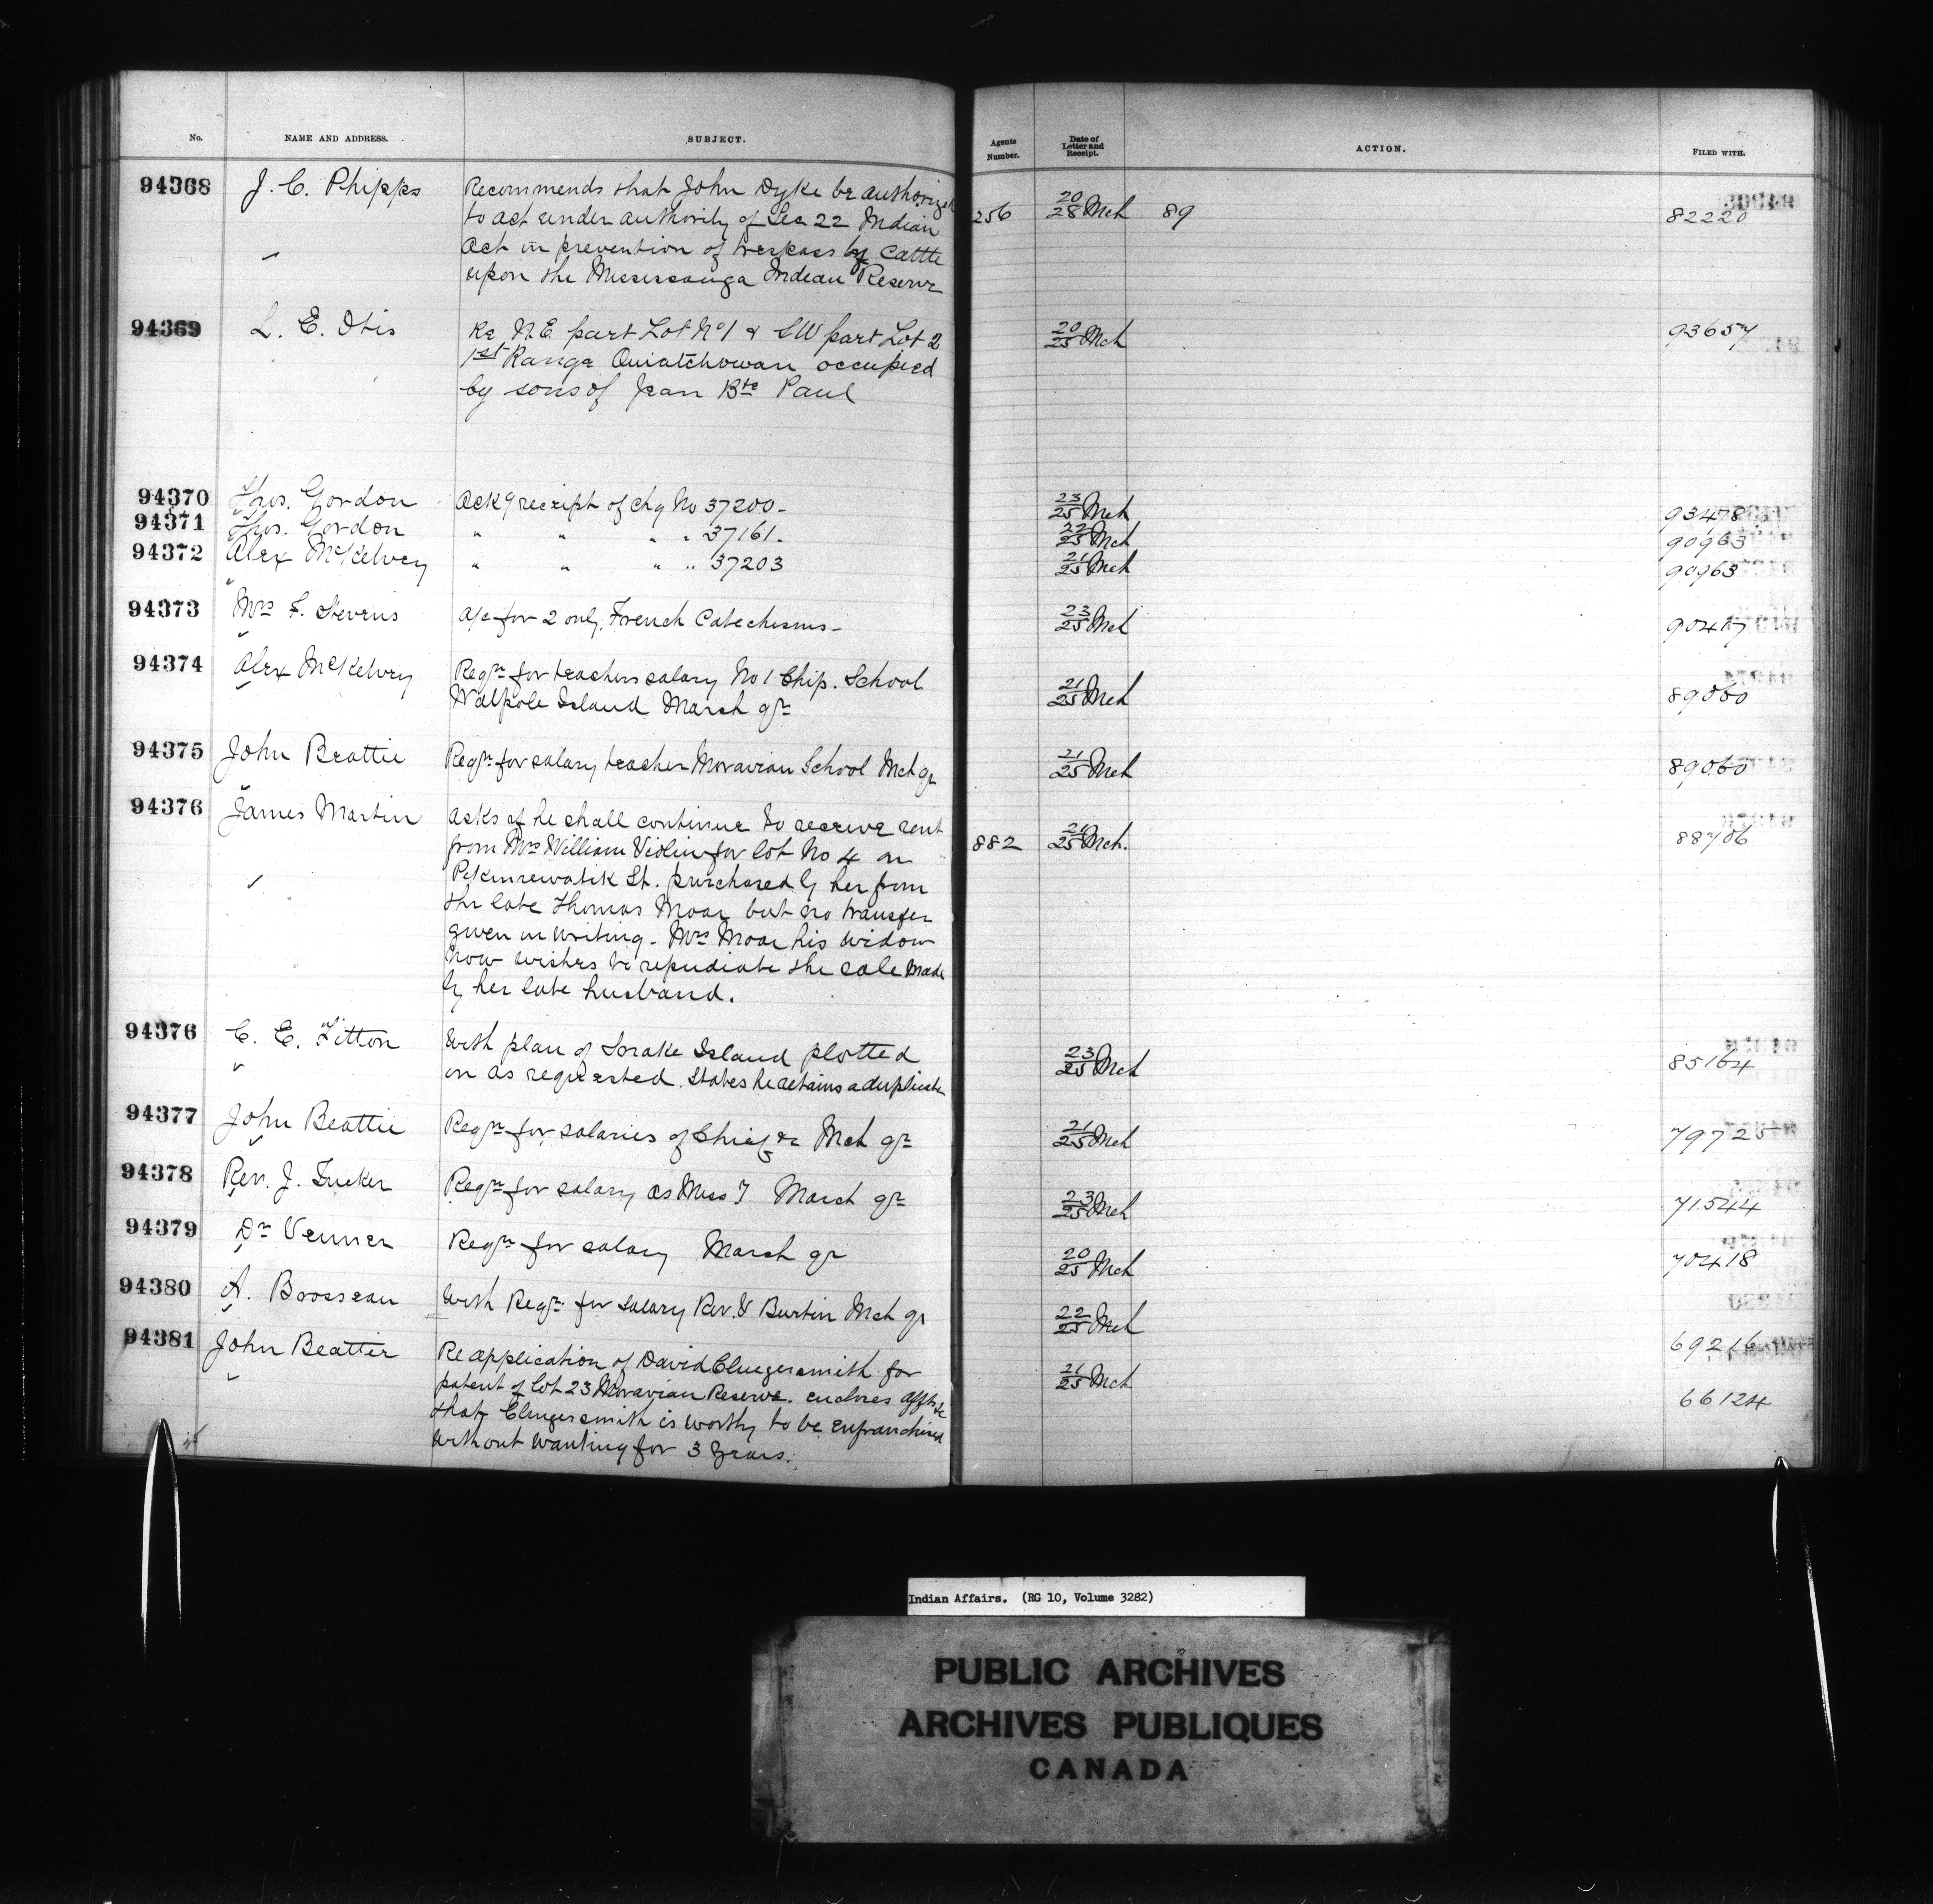 No. NAME AND ADDRESS. SUBJECT. Agents Number. Date of Letter and Receipt. ACTION. FILED WITH.
94368 J. C. Phipps Recommends that John Dyke be authorized 256 20/28 Mch 89 82220
to act under authority of Sec 22 Indian
Act in prevention of trespass by Cattle
upon the Mississauga Indian Reserve
94369 L. E. Otis Re N.E. part Lot No 1 & SW part Lot 2 20/25 Mch 93657
1st Range Ouiatchouan occupied
by sons of Jean Bte Paul
94370 Thos. Gordon Ack g receipt of chq No 37200- 23/25 Mch 93478
94371 Thos. Gordon " " " " 37161- 22/25 Mch 90963
94372 Alex McKelvey " " " " 37203 21/25 Mch 90963
94373 Mrs F. Stevens a/c for 2 only, French Catechisms- 23/25 Mch 90417
94374 Alex McKelvey Reqn for teachers salary No 1 Chip. School 21/25 Mch 89060
Walpole Island March qr
94375 John Beattie Reqn for salary teacher Moravian School Mch qr 21/25 Mch 89060
94376 James Martin asks if he shall continue to receive rent 882 21/25 Mch. 88706
from Mrs William Violin for lot No 4 on
St. purchased by her from
the late Thomas Moar but no transfer
given in writing. Mrs Moar his widow
now wishes to repudiate the sale made
by her late husband.
94376 C. E. Fitton With plan of Snake Island plotted 23/25 Mch 85164
on as requested. States he retains a duplicate
94377 John Beattie Reqn for salaries of Chief &c Mch qr 21/25 Mch 79725
94378 Rev. J. Tucker Reqn for salary as Miss Y March qr 23/25 Mch 71544
94379 Dr Venner Reqn for salary March qr 20/25 Mch 70418
94380 A. Brosseau With Reqn for salary Rev. V Burtin Mch qr 22/25 Mch 69216
94381 John Beattie Re application of David Clingersmith for 21/25 Mch 66124
patent of lot 23 Moravian Reserve. encloses
that Clingersmith is worthy to be enfranchised
without waiting for 3 years.
Indian Affairs. (RG 10, Volume 3282)
PUBLIC ARCHIVES
ARCHIVES PUBLIQUES
CANADA